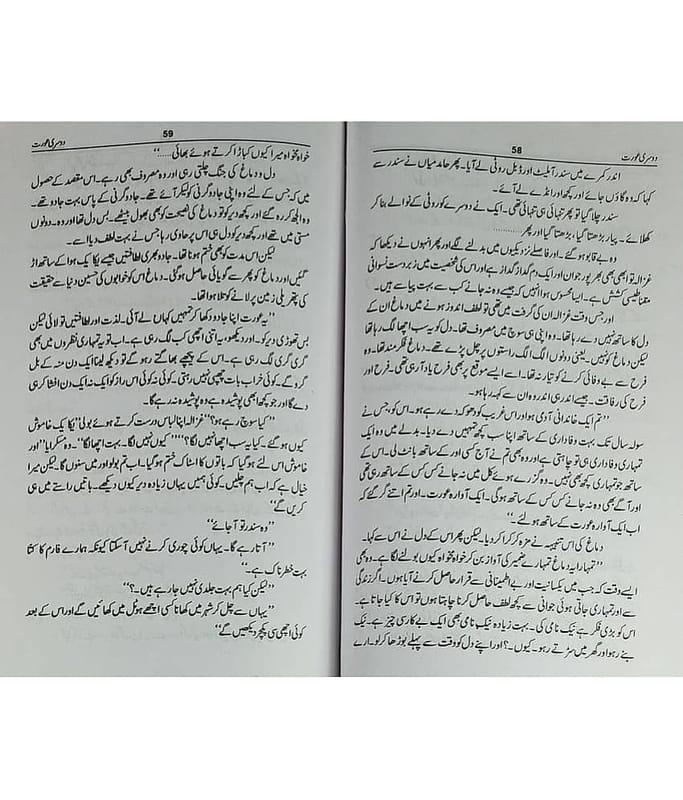 دوسری عورت 58
اندر کمرے میں سندر آملیٹ اور ڈبل روٹی لے آیا۔ پھر حامد میاں نے سندر سے
کہا کہ وہ گاؤں جائے اور کچھ اور انڈے لے آئے۔
سندر چلا گیا تو پھر تنہائی ہی تنہائی تھی۔ ایک نے دوسرے کو روٹی کے نوالے بنا کر
کھلائے۔ پیار بڑھتا گیا، بڑھتا گیا اور پھر............
وہ بے قابو ہو گئے۔ اور فاصلے نزدیکیوں میں بدلنے لگے اور پھر انہوں نے دیکھا کہ
غزالہ تو ابھی بھی بھرپور جوان اور ایک دم گداز گداز ہے اور اس کی شخصیت میں زبردست نسوانی
مقناطیسی کشش ہے۔ ایسا محسوس ہوا انہیں کہ جیسے وہ نہ جانے کب سے بہت پیاسے ہیں۔
اور جس وقت غزالہ ان کی گرفت میں تھی تو لطف اندوز ہونے میں دماغ ان کے
دل کا ساتھ نہیں دے رہا تھا۔ وہ اپنی ہی سوچ میں مصروف تھا۔ دل کو یہ سب اچھا لگ رہا تھا
لیکن دماغ کو نہیں۔ یعنی دونوں الگ الگ راستوں پر چل پڑے تھے۔ دماغ فکرمند تھا۔ وہ
فرح سے بے وفائی کرنے کو تیار نہ تھا۔ اسے ایسے موقع پر بھی فرح یاد آ رہی تھی۔ فرح اور
فرح کی رفاقت۔ جیسے اندر ہی اندر وہ ان سے کہہ رہا ہو۔
”تم ایک خاندانی آدمی ہو اور اس غریب کو دھوکہ دے رہے ہو۔ اس کو، جس نے
سولہ سال تک بہت وفاداری کے ساتھ اپنا سب کچھ تمہیں دے دیا۔ بدلے میں وہ ایک
تمہاری وفاداری ہی تو چاہتی ہے اور وہ بھی تم نے آج کسی اور کے ساتھ بانٹ لی۔ اس کے
ساتھ جو تمہاری کچھ بھی نہیں۔ وہ گزرے ہوئے کل میں نہ جانے کس کس کے ساتھ رہی تھی
اور آگے بھی وہ نہ جانے کس کس کے ساتھ ہو گی۔ ایک آوارہ عورت۔ اور تم اتنے گر گئے کہ
اب ایک آوارہ عورت کے ساتھ ہو لئے۔“
دماغ کی اس تنبیہہ نے مزہ کرکرا کر دیا۔ لیکن پھر اس کے دل نے اس سے کہا۔
”تمہارا یہ دماغ تمہارے ضمیر کی آواز بن کر خواہ مخواہ کیوں بولنے لگا ہے۔ وہ بھی
ایسے وقت کہ جب میں یکسانیت اور بے اطمینانی سے قرار حاصل کرنے آیا ہوں۔ اگر زندگی
سے اور تمہاری جاتی ہوئی جوانی سے کچھ لطف حاصل کرنا چاہتا ہوں تو اس کا کیا جاتا ہے۔
اس کو بڑی فکر ہے نیک نامی کی۔ بہت زیادہ نیک نامی بھی ایک بے کار سی چیز ہے۔ نیک
بنے رہو اور گھر میں سڑتے رہو۔ کیوں۔؟ اور اپنے دل کو وقت سے پہلے بوڑھا کر لو۔ ارے
59 دوسری عورت
خواہ مخواہ میرا کیوں کباڑا کرتے ہوئے بھائی......“
دل و دماغ کی جنگ چلتی رہی اور وہ مصروف بھی رہے۔ اس مقصد کے حصول
میں کہ جس کے لئے وہ اپنی جادوگرنی کو لیکر آئے تھے۔ جادوگرنی کے پاس بہت جادو تھے۔
وہ الجھ کر رہ گئے اور کچھ دیر کو تو دماغ کی نصیحت کو بھی بھول بیٹھے۔ بس دل تھا اور وہ۔ دونوں
مستی میں تھے اور کچھ دیر کو دل ہی اس پر حاوی رہا جس نے بہت لطف دیا اسے۔
لیکن اس مدت کو بھی ختم ہونا تھا۔ جادو بھری لطافتیں جیسے یکایک ہوا کے ساتھ اڑ
گئیں اور دماغ کو پھر سے گویائی حاصل ہو گئی۔ دماغ اس کو خوابوں کی حسین دنیا سے حقیقت
کی پتھریلی زمین پر لانے کو تلا ہوا تھا۔
”یہ عورت اپنا جادو دکھا کر تمہیں کہاں لے آئی۔ لذت اور لطافتیں تو لائی لیکن
بس تھوڑی دیر کو۔ اور دیکھو یہ اتنی اچھی کب لگ رہی ہے۔ اب تو یہ تمہاری نظروں میں بھی
گری گری لگ رہی ہے۔ اس کے پیچھے بھاگتے رہو گے تو دیکھ لینا ایک دن منہ کے بل
گرو گے۔ کوئی خراب بات چھپی نہیں رہتی۔ کوئی نہ کوئی اس راز کو ایک نہ ایک دن افشا کر ہی
دے گا اور جو کچھ ابھی پوشیدہ ہے وہ پوشیدہ نہ رہے گا۔
”کیا سوچ رہے ہو؟“ غزالہ اپنا لباس درست کرتے ہوئے بولی ”یکایک خاموش
کیوں ہو گئے۔ کیا یہ سب اچھا نہیں لگا؟“ ”کیوں نہیں لگا۔ بہت اچھا لگا“۔ وہ مسکرایا ”اور
خاموش اس لئے ہو گیا کہ باتوں کا اسٹاک ختم ہو گیا۔ اب تم بولو اور میں سنوں گا۔ لیکن میرا
خیال ہے کہ اب ہم چلیں۔ کوئی ہمیں یہاں زیادہ دیر کیوں دیکھے۔ باتیں راستے میں ہی
کریں گا“
”وہ سندر تو آ جائے“
”آتا رہے گا۔ یہاں کوئی چوری کرنے نہیں آ سکتا کیونکہ ہمارے فارم کا کتا
بہت خطرناک ہے۔“
”لیکن کیا ہم بہت جلدی نہیں جا رہے ہیں۔؟“
”یہاں سے چل کر شہر میں کھانا کسی اچھے ہوٹل میں کھائیں گے اور اس کے بعد
کوئی اچھی سی پکچر دیکھیں گے“